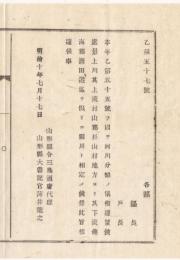 乙第五十七號
各郡
區長
戸長
本年乙第五十五號ヲ以テ河川分類ノ儀相達置候
處最上川其上流村山郡杉山村地方ヨリ其下流飽
海郡酒田港區ヲ
川ト相定メ候條此旨相
達候事
明治十年七月十七日
山形縣令三島通庸代理
山形縣大書記官